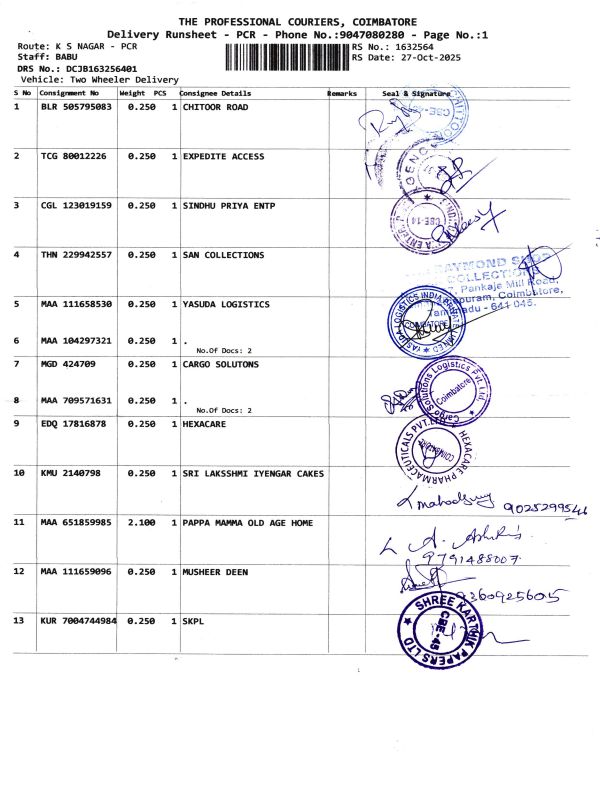 THE PROFESSIONAL COURIERS, COIMBATORE
Delivery Runsheet - PCR - Phone No.:9047080280 - Page No.:1
Route: K S NAGAR - PCR RS No.: 1632564
Staff: BABU RS Date: 27-Oct-2025
DRS No.: DCJB163256401
Vehicle: Two Wheeler Delivery
S No Consignment No Weight PCS Consignee Details Remarks Seal & Signature
1 BLR 505795083 0.250 1 CHITOOR ROAD
CHITTOOR CBE-45
2 TCG 80012226 0.250 1 EXPEDITE ACCESS
AGENC
3 CGL 123019159 0.250 1 SINDHU PRIYA ENTP
CBE-14
4 THN 229942557 0.250 1 SAN COLLECTIONS
RAYMOND SHOP
COLLECTIONS
7, Pankaja Mill Road,
puram, Coimbatore,
Tamilnadu - 641 045.
5 MAA 111658530 0.250 1 YASUDA LOGISTICS
YASUDA LOGISTICS INDIA PRIVATE LIMITED COIMBATORE
6 MAA 104297321 0.250 1 .
No.Of Docs: 2
7 MGD 424709 0.250 1 CARGO SOLUTONS
Cargo Solutions Logistics Pvt. Ltd. Coimbatore
8 MAA 709571631 0.250 1 .
No.Of Docs: 2
9 EDQ 17816878 0.250 1 HEXACARE
HEXACARE PHARMACEUTICALS PVT.LTD. COIMBATORE
10 KMU 2140798 0.250 1 SRI LAKSSHMI IYENGAR CAKES
9025299546
11 MAA 651859985 2.100 1 PAPPA MAMMA OLD AGE HOME
9791488007
12 MAA 111659096 0.250 1 MUSHEER DEEN
9360925605
13 KUR 7004744984 0.250 1 SKPL
SHREE KARTHIK PAPERS LTD CBE-45